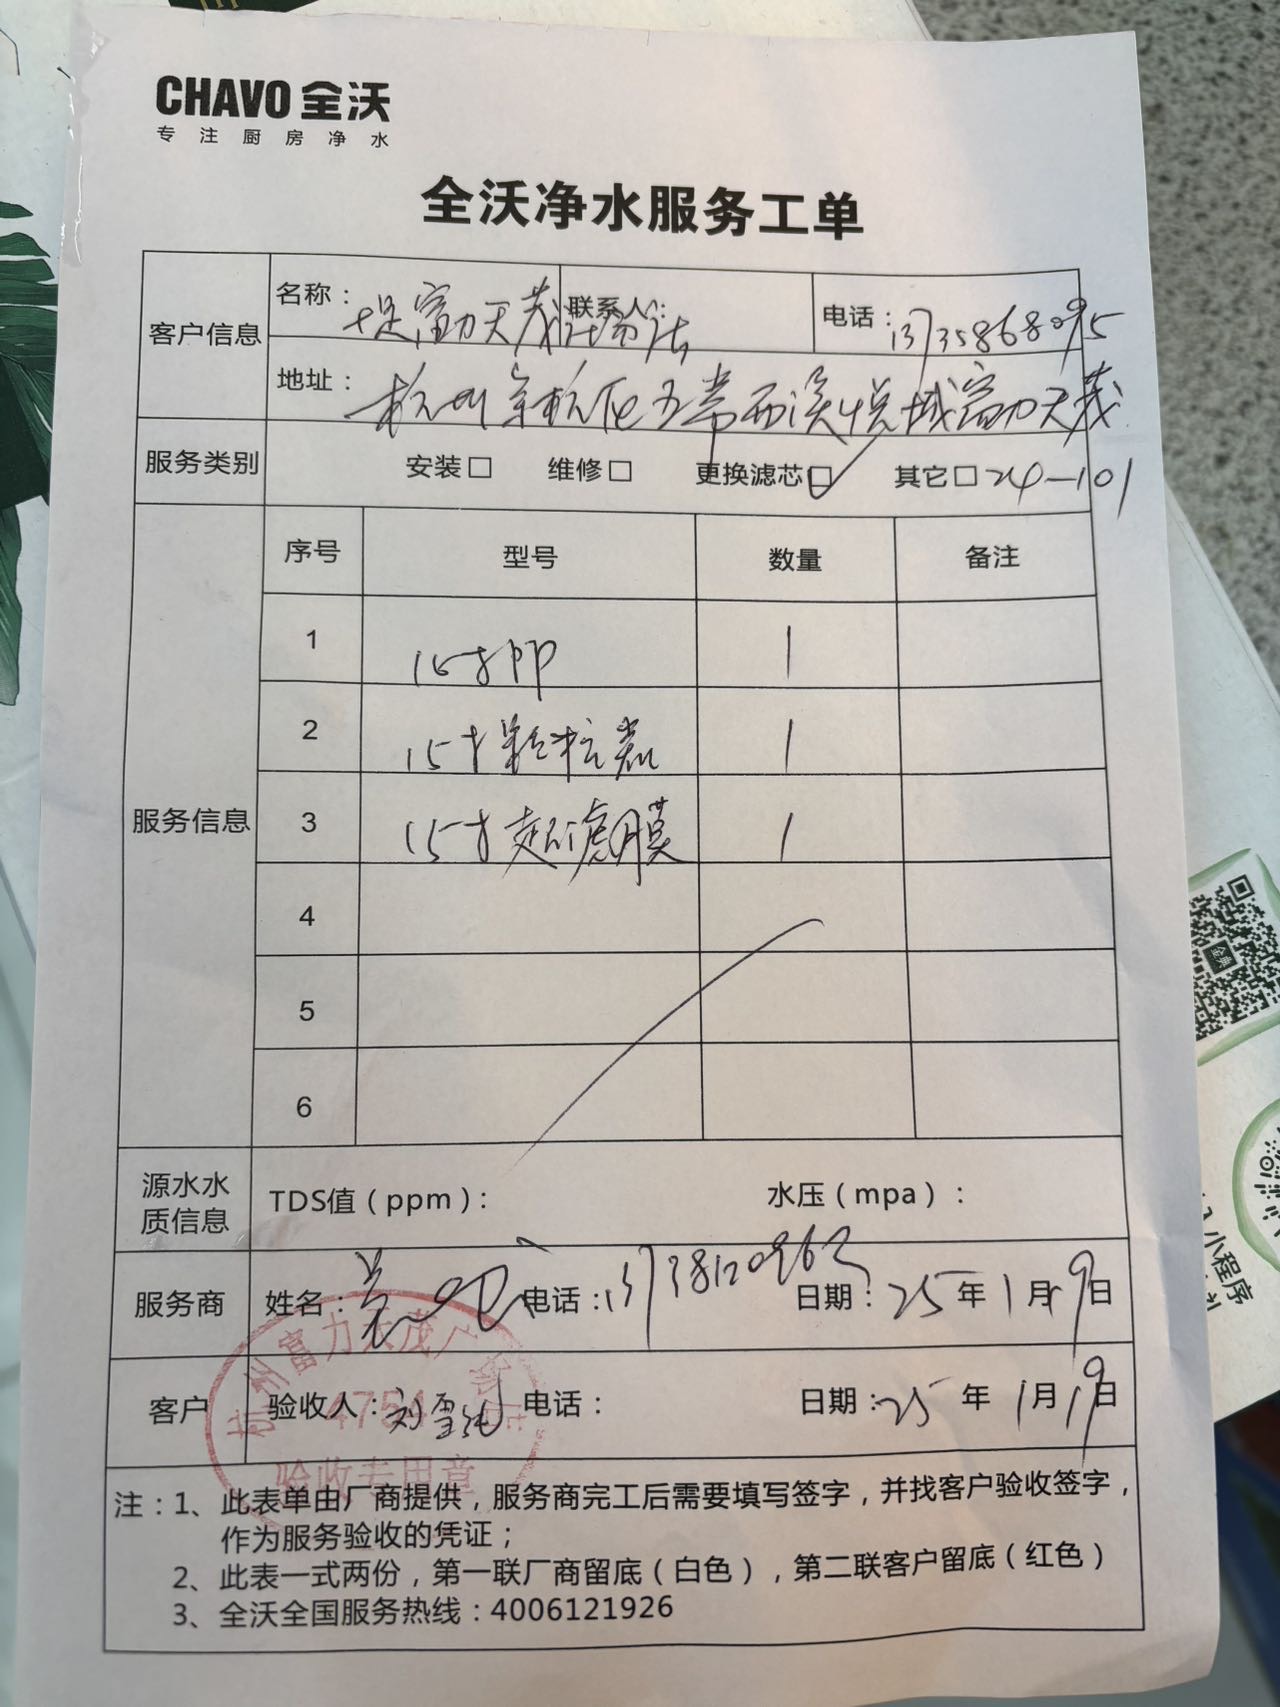 CHAVO 全沃
专注厨房净水
全沃净水服务工单
客户信息
名称: 富力天茂 联系人: 电话: 13735868095
地址: 杭州余杭区五常西溪悦城富力天茂
服务类别 安装□ 维修□ 更换滤芯□✓ 其它□ 24-101
服务信息
序号 型号 数量 备注
1 15寸PP 1
2 15寸颗粒炭 1
3 15寸超滤膜 1
4
5
6
源水水质信息 TDS值(ppm): 水压(mpa):
服务商 姓名: 电话: 13738120962 日期: 25年1月19日
客户 验收人: 刘雪 电话: 日期: 25年1月19日
杭州富力天茂广场店
4754
验收专用章
注:1、此表单由厂商提供,服务商完工后需要填写签字,并找客户验收签字,
作为服务验收的凭证;
2、此表一式两份,第一联厂商留底(白色),第二联客户留底(红色)
3、全沃全国服务热线:4006121926
金典
小程序